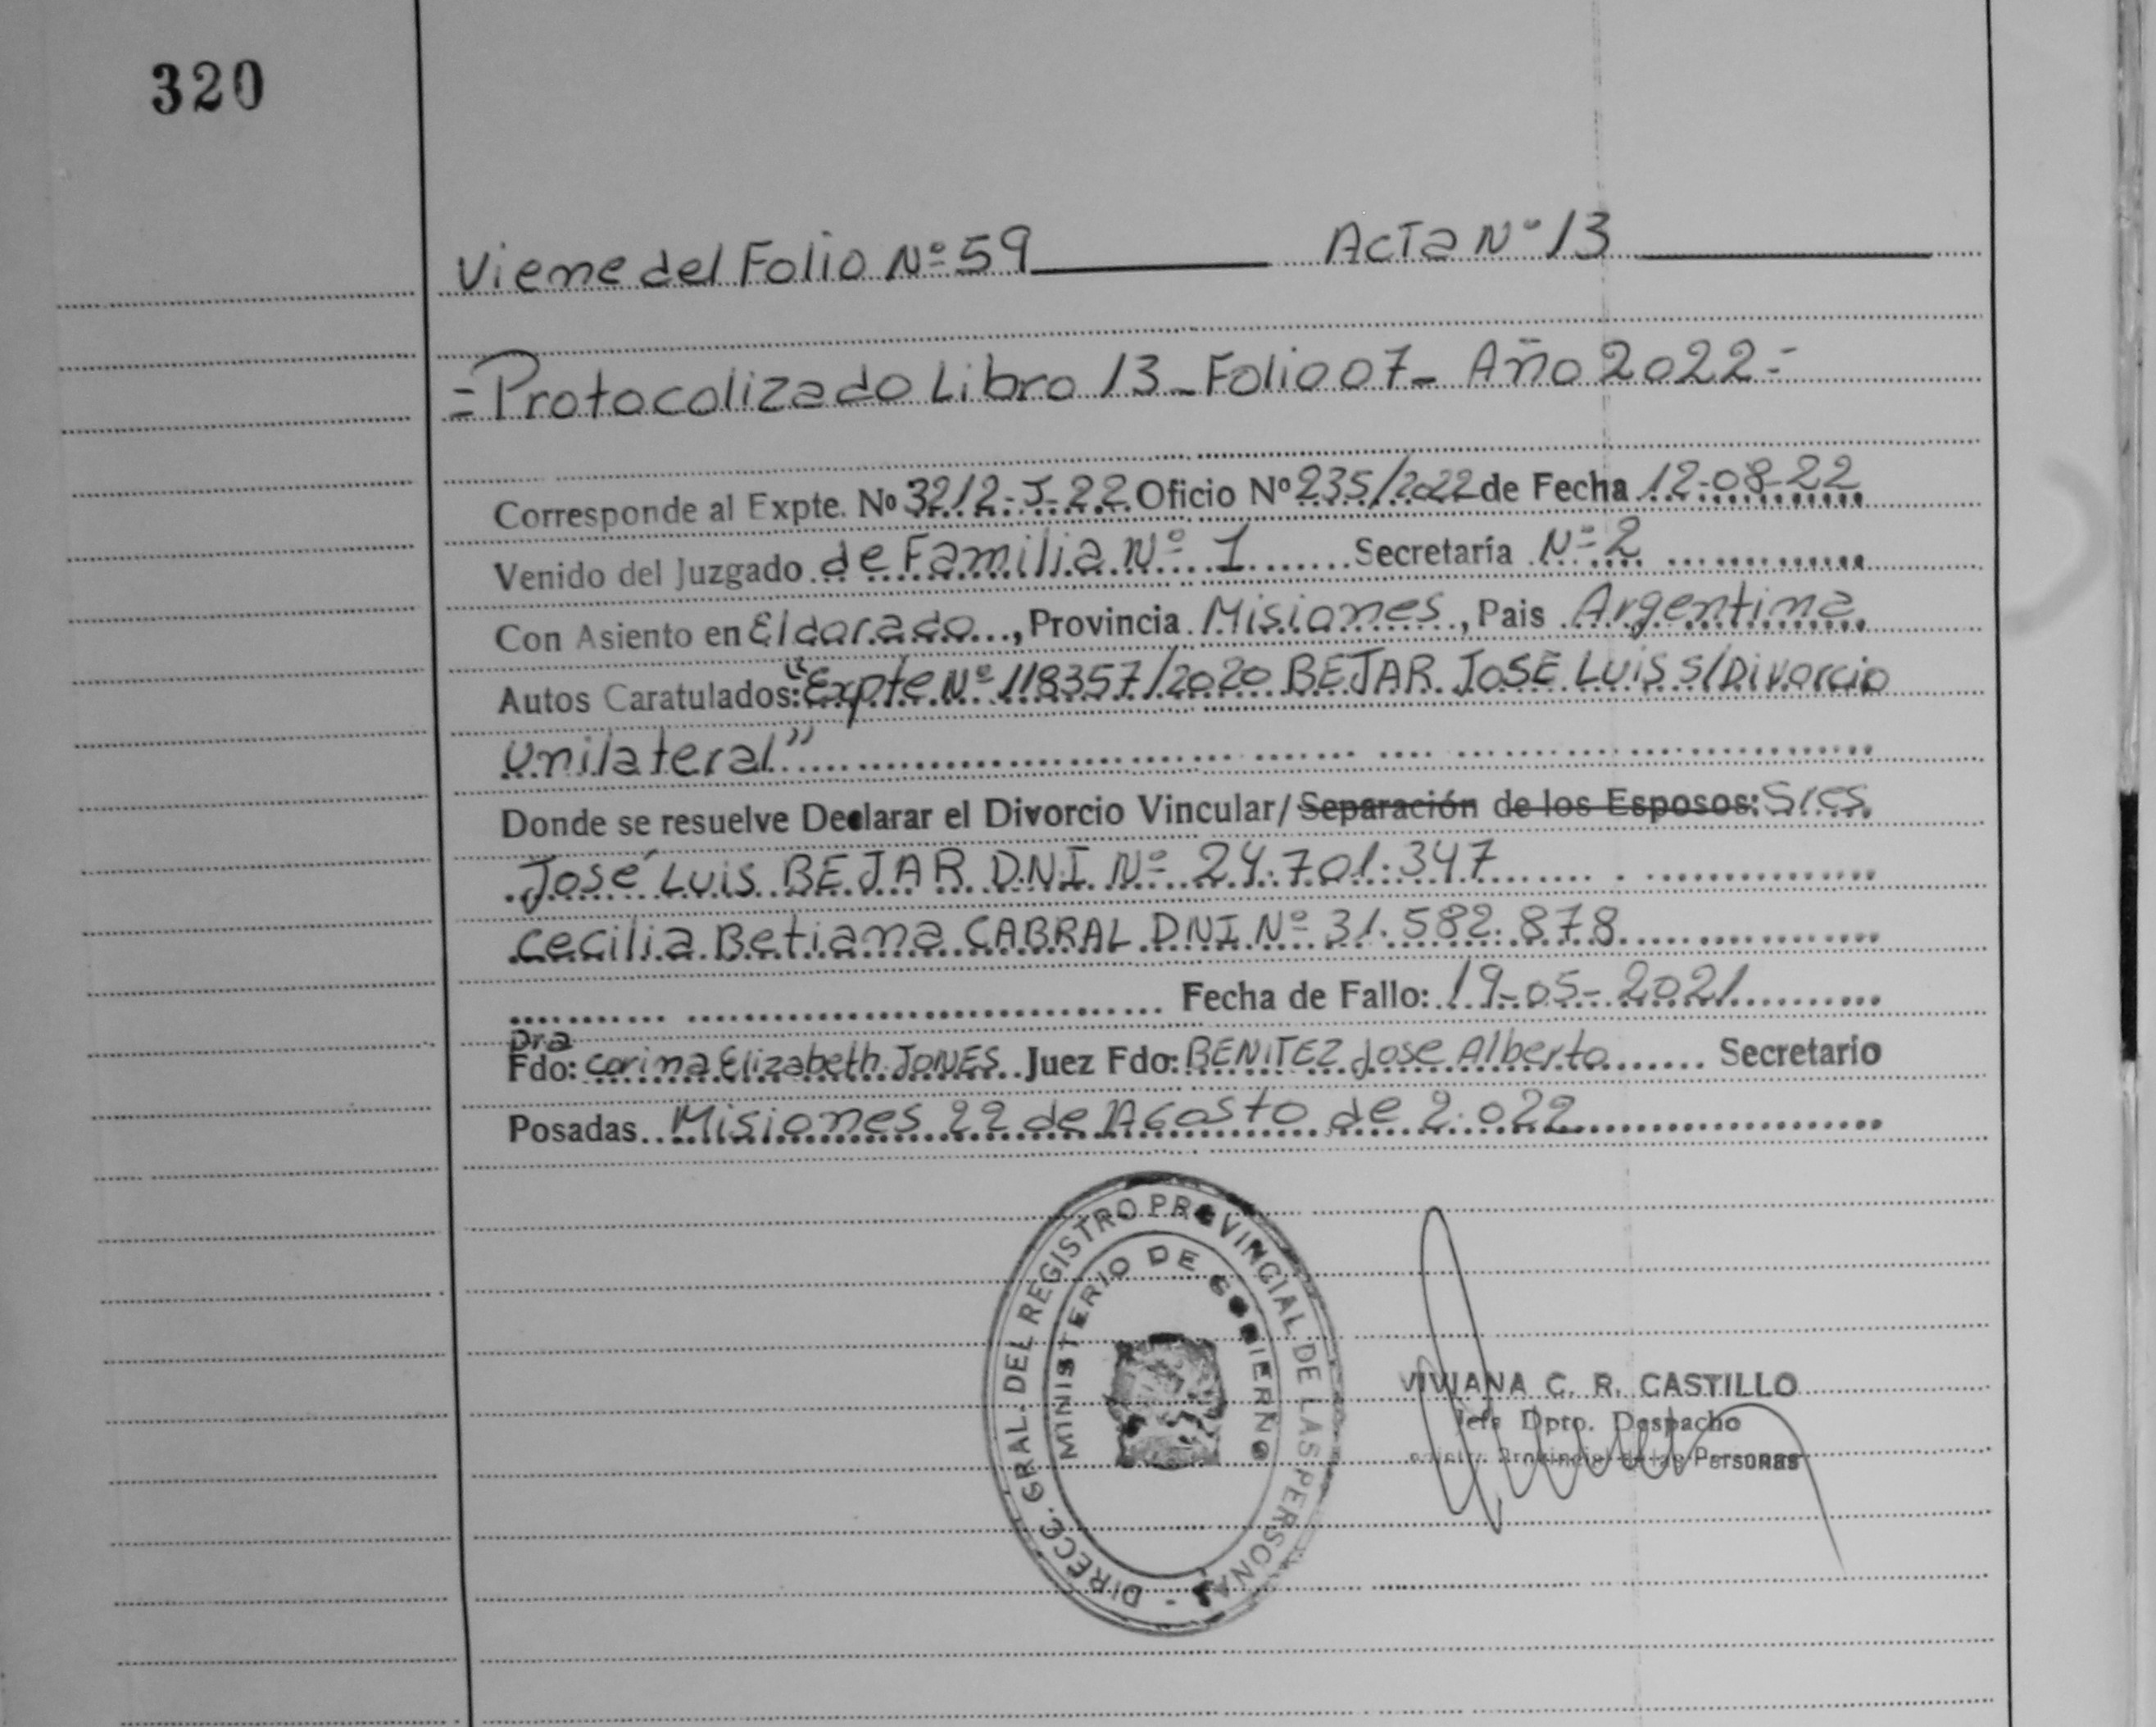 320
Viene del Folio Nº 59 Acta Nº 13
=Protocolizado Libro 13_Folio 07_ Año 2022=
Corresponde al Expte. Nº 3212-J-22 Oficio Nº 235/2022 de Fecha 12-08-22
Venido del Juzgado de Familia Nº 1 Secretaría Nº 2
Con Asiento en Eldorado, Provincia Misiones, Pais Argentina
Autos Caratulados: "Expte Nº 118357/2020 BEJAR JOSE LUIS S/Divorcio
Unilateral"
Donde se resuelve Declarar el Divorcio Vincular/Separación de los Esposos: Sres.
José Luis BEJAR D.N.I. Nº 24.701.347
Cecilia Betiana CABRAL DNI Nº 31.582.878
Fecha de Fallo: 19-05-2021
Dra
Fdo: Corina Elizabeth JONES. Juez Fdo: BENITEZ Jose Alberto Secretario
Posadas Misiones 22 de Agosto de 2.022
DIRECC. GRAL. DEL REGISTRO PROVINCIAL DE LAS PERSONAS -
MINISTERIO DE GOBIERNO
VIVIANA C. R. CASTILLO
Jefe Dpto. Despacho
Provincial de las Personas